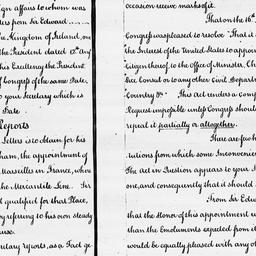 ign affairs to whom was
ters from Sir Edward
the Kingdom of Ireland, one
the President dated 12th Augt
his Excellency the President
of Congress of the same Date,
to your Secretary which is
Date.
Reports
Letters is to obtain for his
ham, the appointment of
Marseilles in France, where
the Mercantile Line. Sir
l qualified for that Place,
by referring to his own steady
use.
entary reports, as a Fact ge
occasion receive marks of it.
That on the 16th
Congress was pleased to resolve "That it i
the Interest of the United States to appoin
Citizen thereof, to the Office of Minister, Ch
Vice Consul or to any other Civil Depart
Country" This Act renders a comp
Request impossible unless Congress shoul
repeal it partially or altogether.
There are few h
tations from which some Inconvenien
The Act in Question appears to your
one, and consequently that it should
From Sir Edw
that the Honor of this appointment w
than the Emoluments expected from it
would be equally pleased with any of